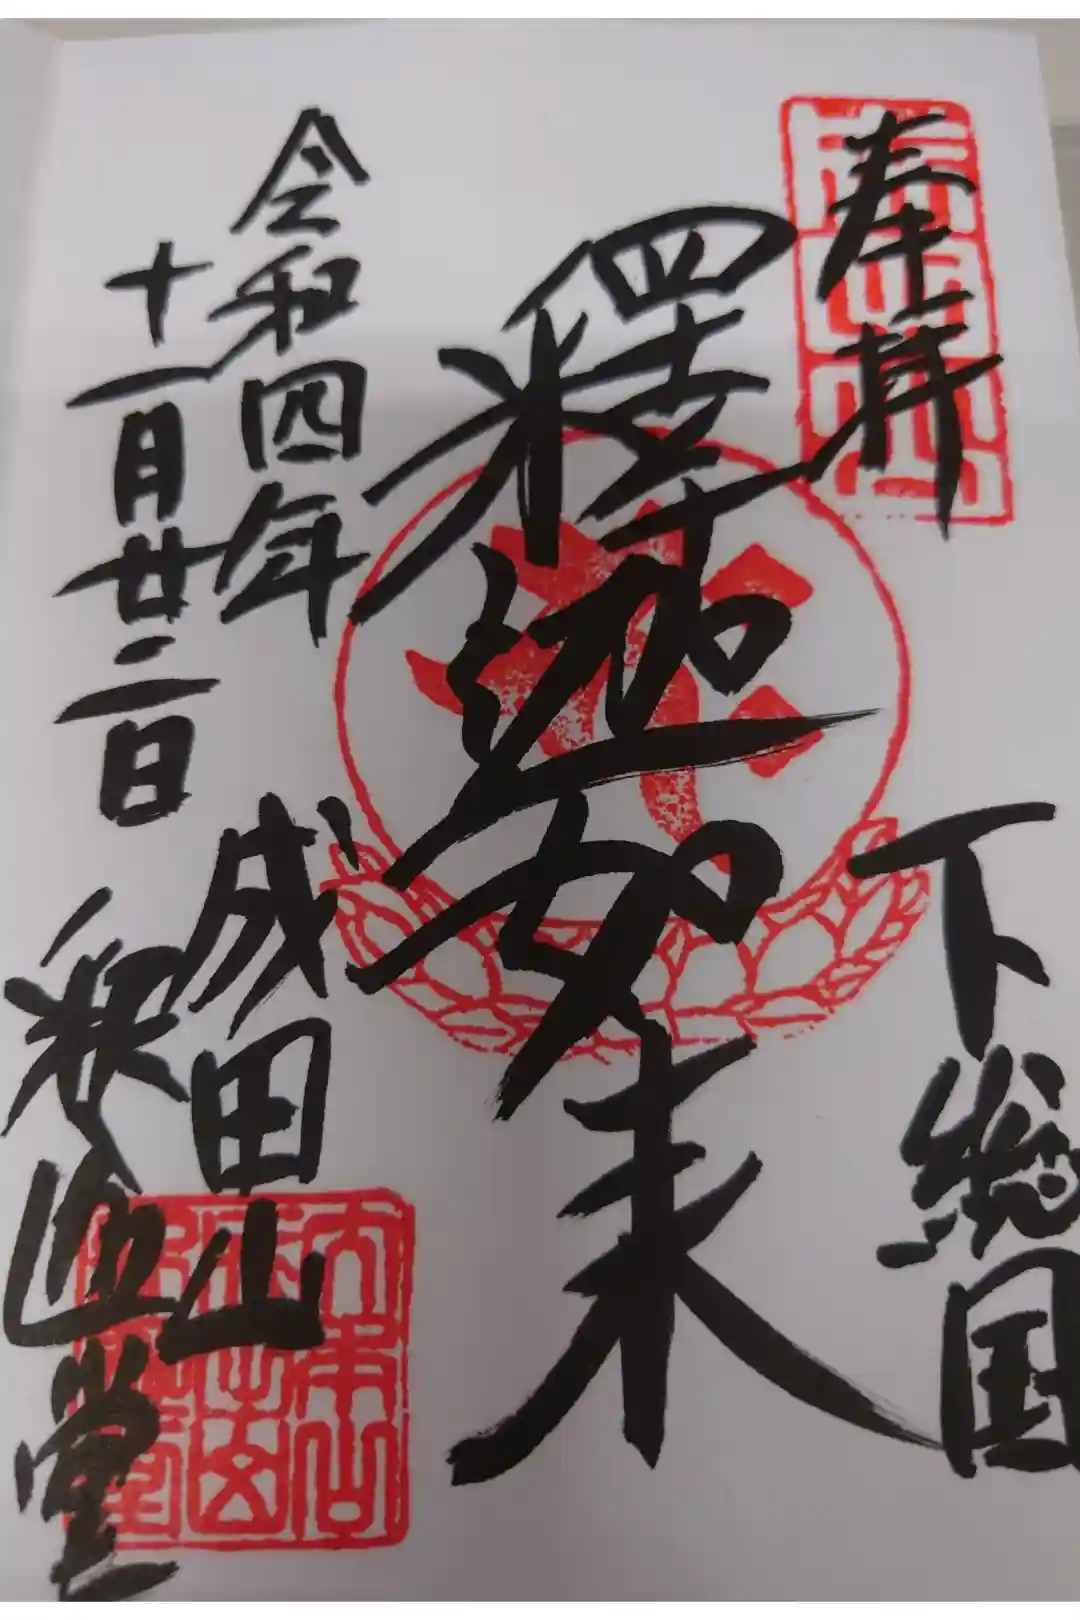 奉拝
下総国
釋迦如来
令和四年
十一月廿二日
成田山
釈迦堂
成田山
大本山